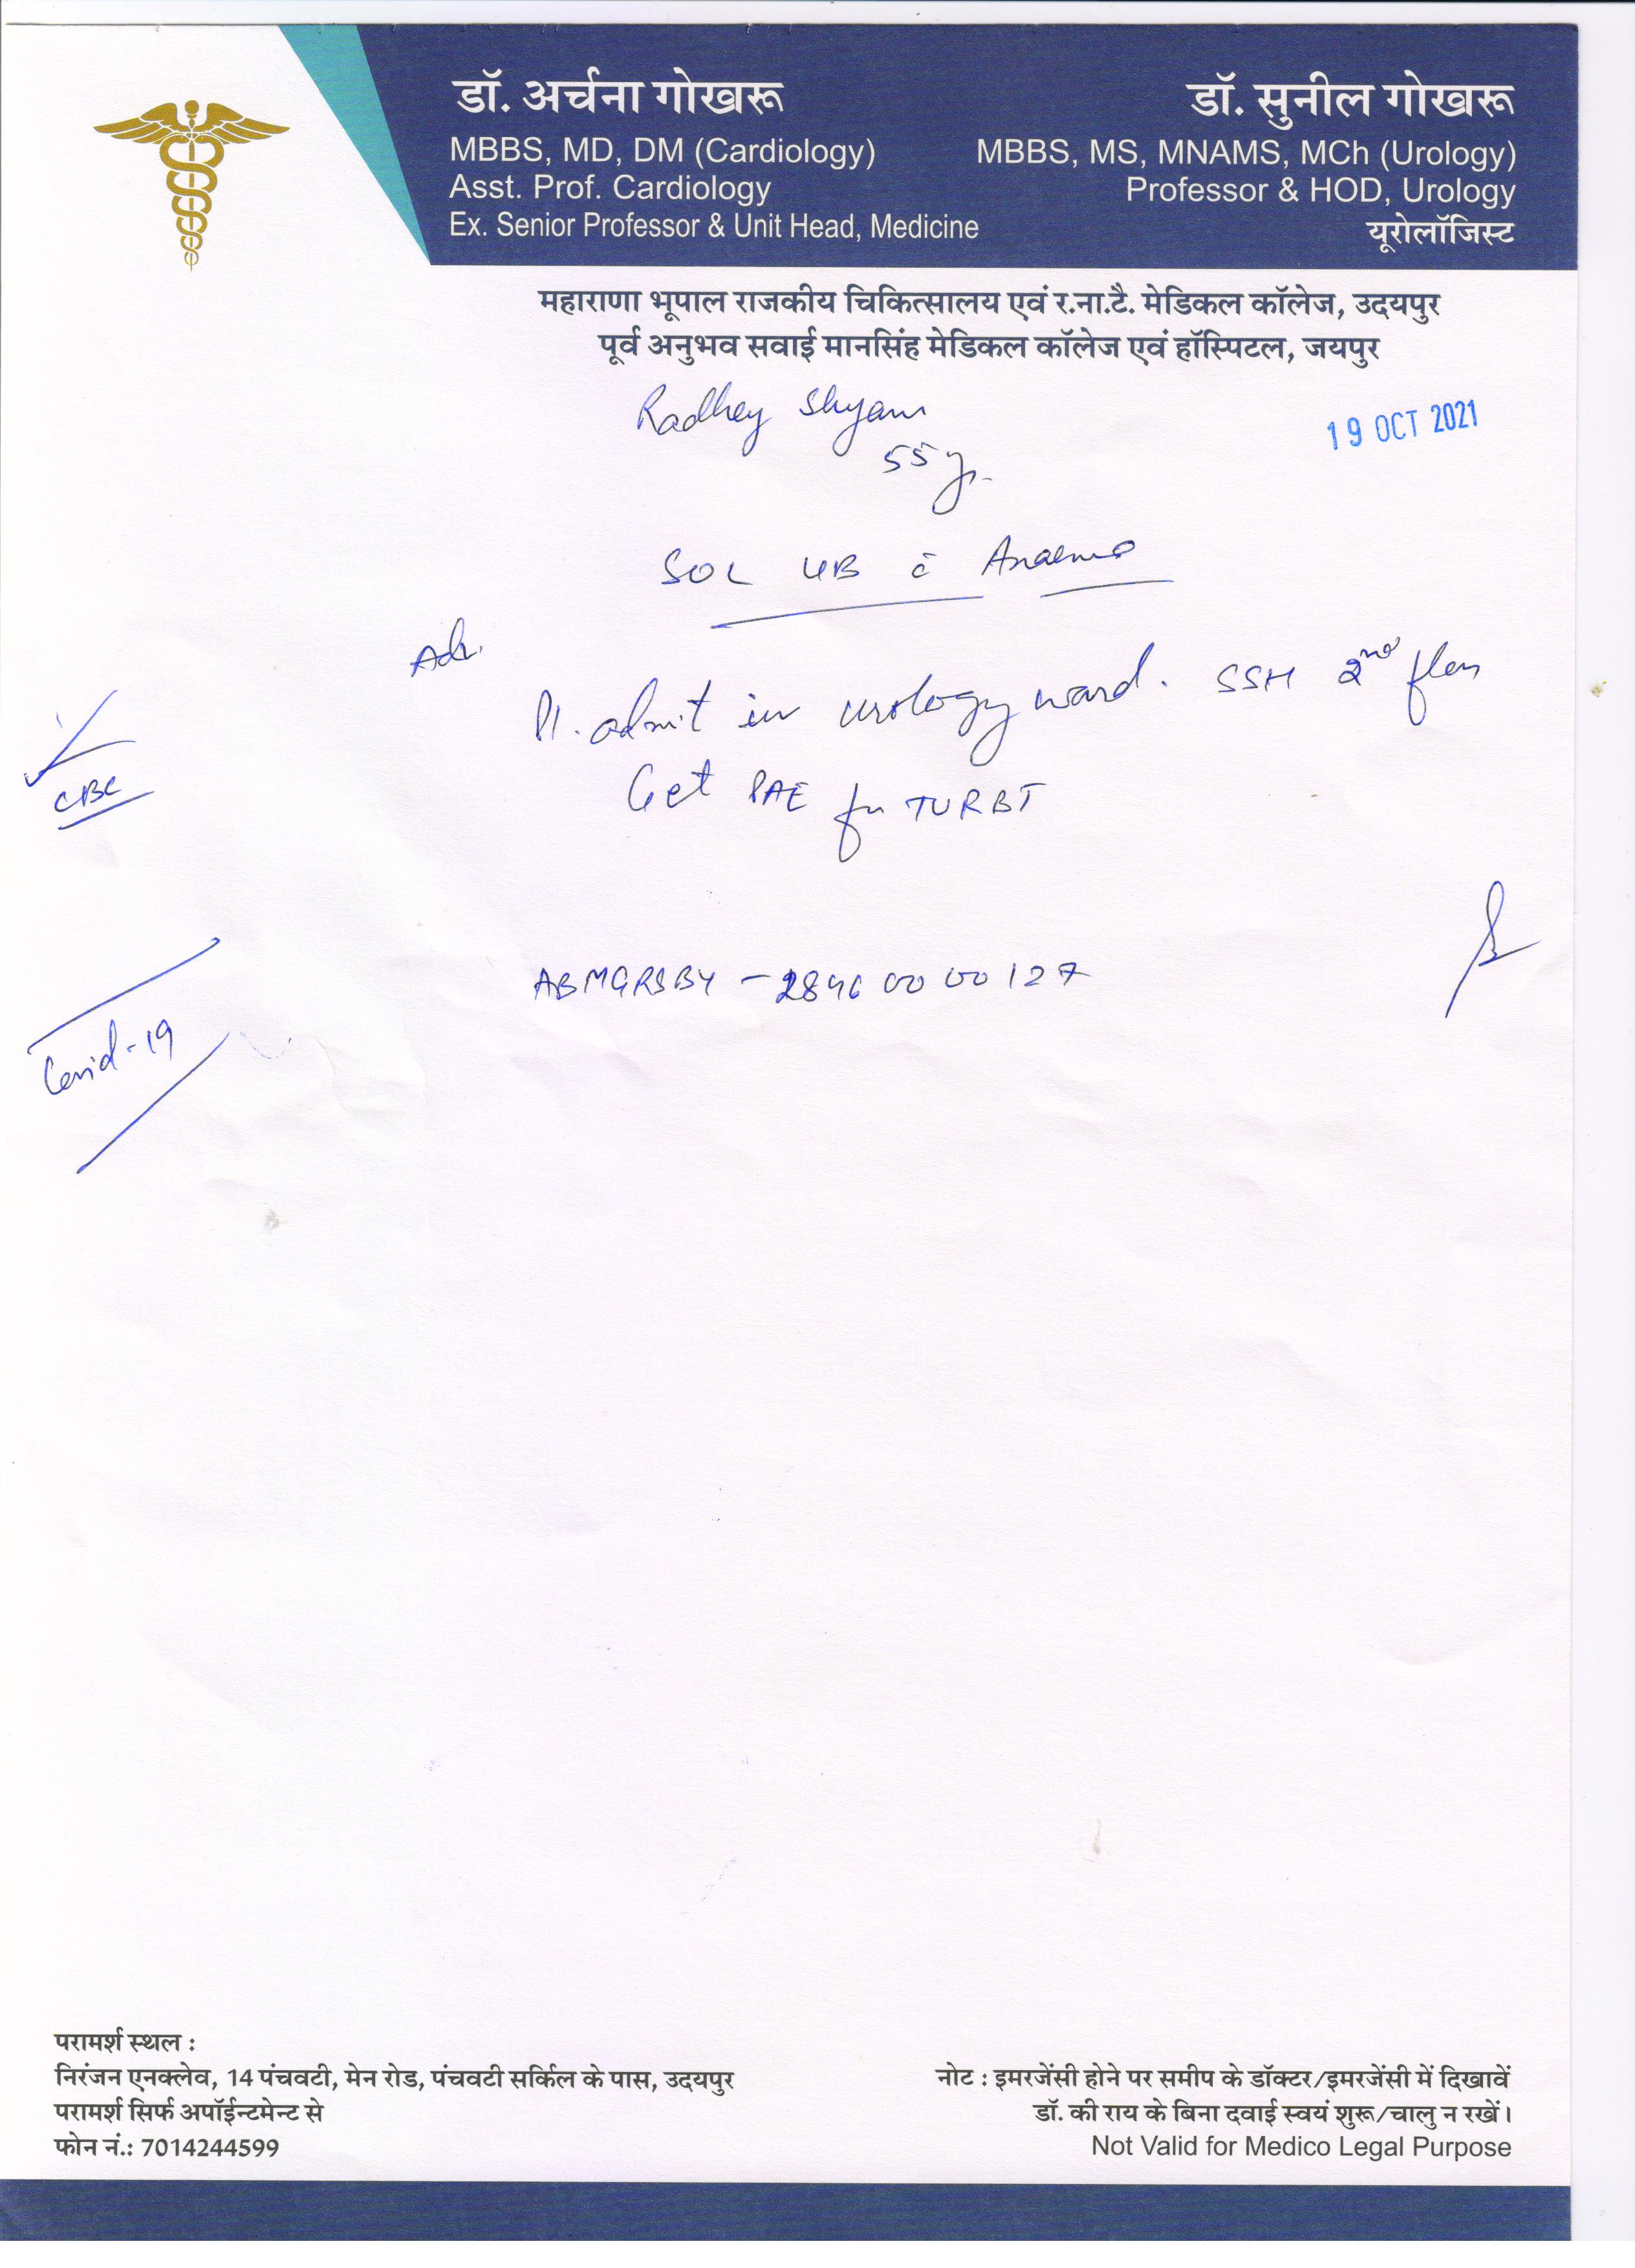 डॉ. अर्चना गोखरू
MBBS, MD, DM (Cardiology)
Asst. Prof. Cardiology
Ex. Senior Professor & Unit Head, Medicine
डॉ. सुनील गोखरू
MBBS, MS, MNAMS, MCh (Urology)
Professor & HOD, Urology
यूरोलॉजिस्ट
महाराणा भूपाल राजकीय चिकित्सालय एवं र.ना.टै. मेडिकल कॉलेज, उदयपुर
पूर्व अनुभव सवाई मानसिंह मेडिकल कॉलेज एवं हॉस्पिटल, जयपुर
Radhey Shyam
19 OCT 2021
55 yr.
SOL UB c̄ Anaemia
Adv.
Pl. admit in urology ward. SSH 2nd floor
CBC
Get PAE for TURBT
ABMGRSBY - 2846 00 00 127
Covid-19
परामर्श स्थल :
निरंजन एनक्लेव, 14 पंचवटी, मेन रोड, पंचवटी सर्किल के पास, उदयपुर
परामर्श सिर्फ अपॉईन्टमेन्ट से
फोन नं.: 7014244599
नोट : इमरजेंसी होने पर समीप के डॉक्टर/इमरजेंसी में दिखावें
डॉ. की राय के बिना दवाई स्वयं शुरू/चालु न रखें।
Not Valid for Medico Legal Purpose